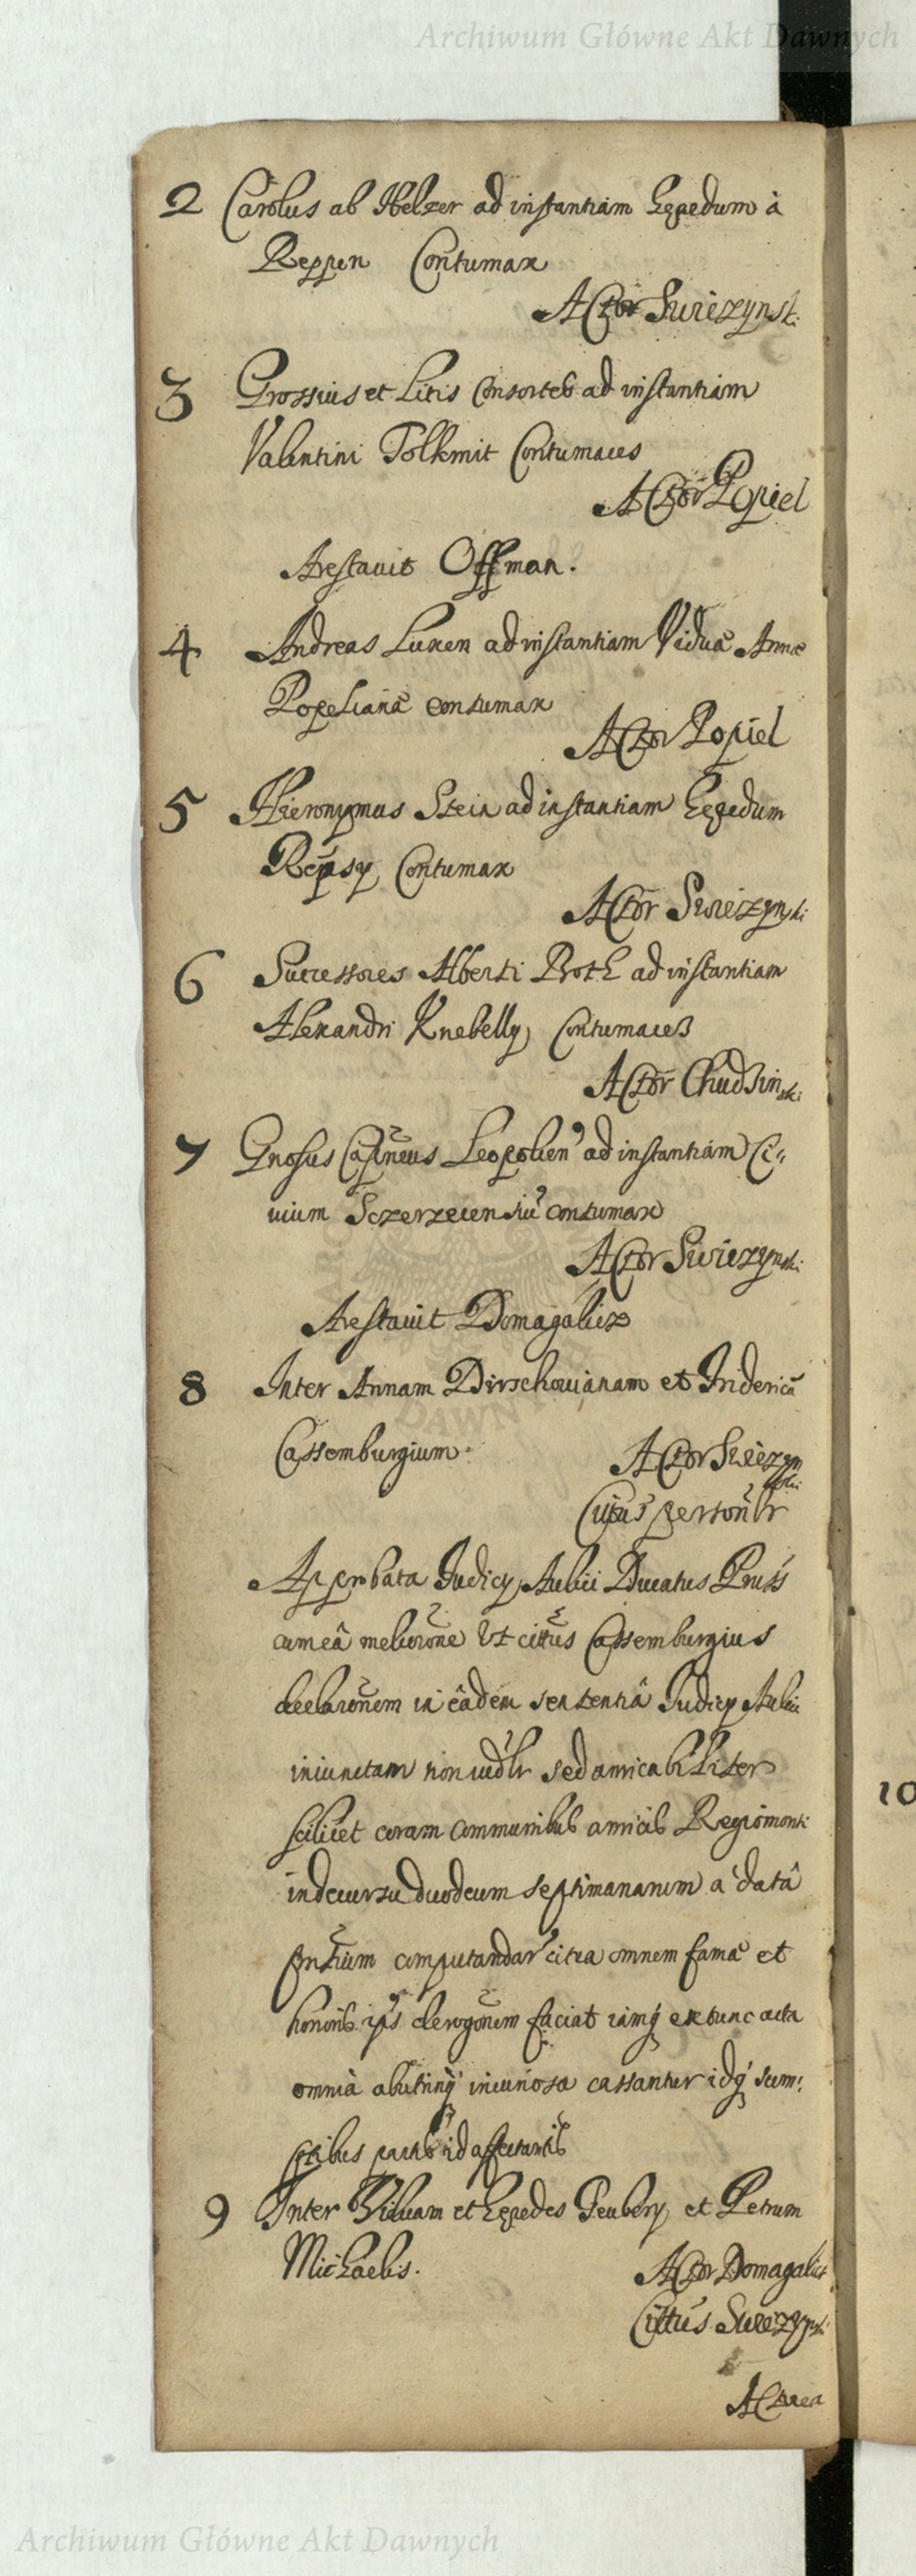 Archiwum Główne Akt Dawnych
2 Carolus ab Helzer ad instantiam Hęredum à
Reppen Contumax
Actor Swieżynski
3 Grossius et Litis Consortes ad instantiam
Valentini Tolkmit Contumaces
Actor Popiel
Arestauit Offman.
4 Andreas Luxen ad instantiam Viduæ Annæ
Popeliana contumax
Actor Popiel
5 Hieronymus Stein ad instantiam Hęredum
Contumax
Actor Swieżynski
6 Successores Alberti Roth ad instantiam
Alexandri Knebelly Contumaces
Actor Chudzinski
7 Leopolien ad instantiam Ci„
uium Sczerzecensiū contumax
Actor Swieżynski
Arestauit Domagalicz
8 Inter Annam Dirschouianam et Fridericū
Cassemburgium.
Actor Swieżynski
Citus personlr
Approbata Judicy Aulici Ducatus Pruss
cum eâ meliorone Vt cittus Cassemburgius
declaronem in eâdem sententiâ Judicy Aulici
iniunctam non iudlr sed amicabiliter
scilicet coram communibus amicis Regiomonti
in decursu duodecim septimanarum a datâ
pntium computandar citra omnem famæ et
honoris ips derogonem faciat iamq extunc acta
omnia abutrinq iniuriosa cassantur idq sum:
ptibus partis id affectantis
9 Inter Viduam et Hęredes Geubery et Petrum
Michaelis.
Actor Domagalicz
Cittus Swieżynski
Actrea
10
Archiwum Główne Akt Dawnych